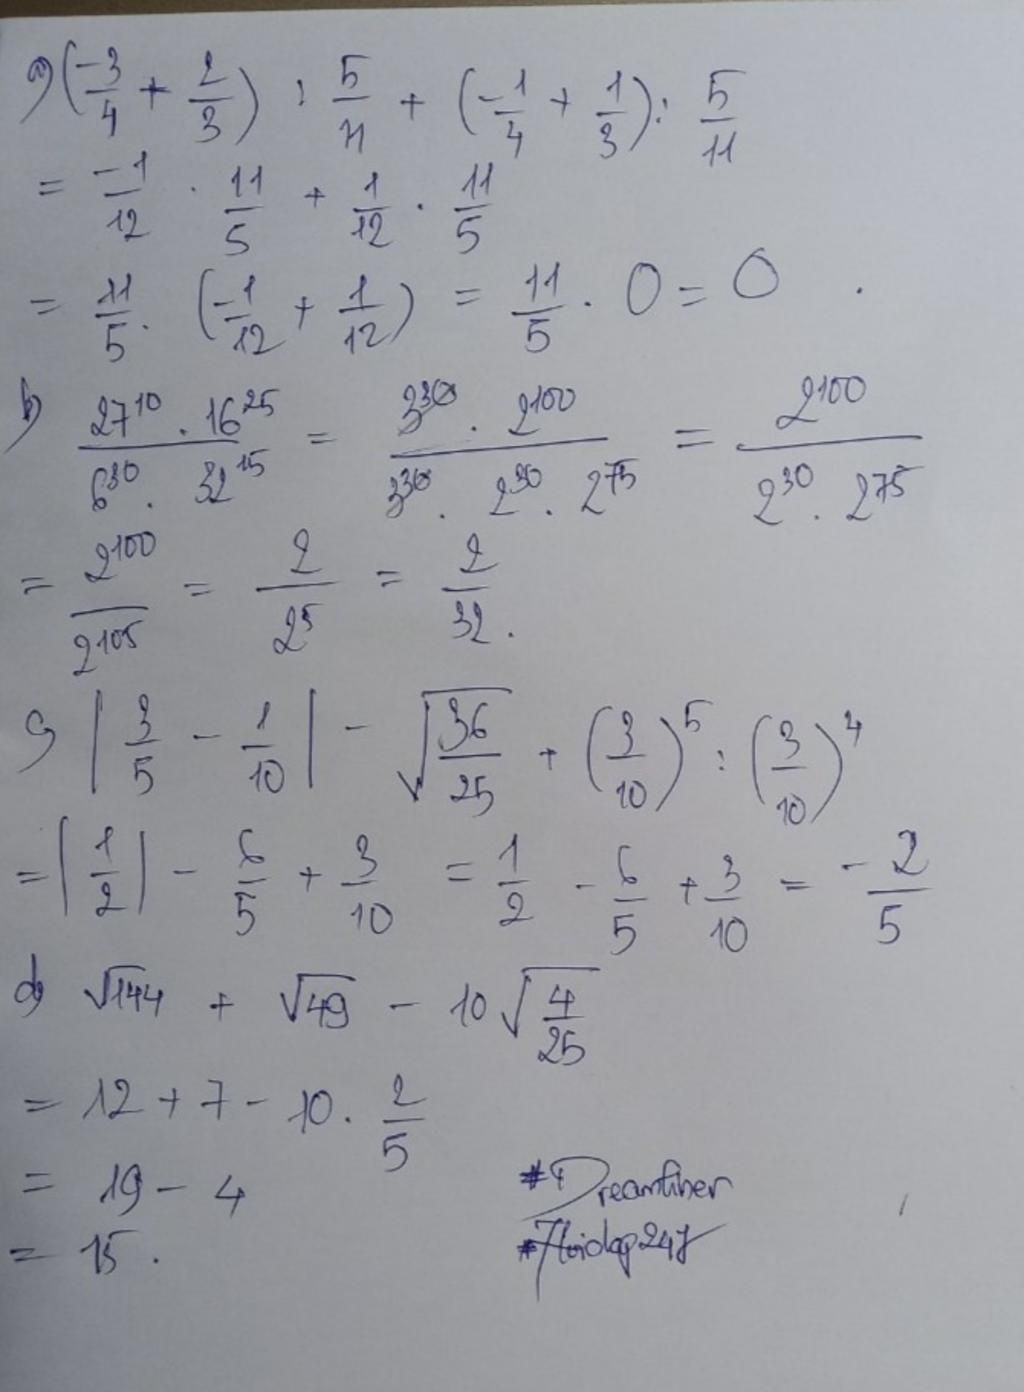 a) (-3/4 + 2/3) : 5/11 + (-1/4 + 1/3) : 5/11
= -1/12 . 11/5 + 1/12 . 11/5
= 11/5 . (-1/12 + 1/12) = 11/5 . 0 = 0 .
b) 27^10 . 16^25 / 6^30 . 32^15 = 3^30 . 2^100 / 3^30 . 2^30 . 2^75 = 2^100 / 2^30 . 2^75
= 2^100 / 2^105 = 2/2^5 = 2/32 .
c) |3/5 - 1/10| - √(36/25) + (3/10)^5 : (3/10)^4
= |1/2| - 6/5 + 3/10 = 1/2 - 6/5 + 3/10 = -2/5
d) √144 + √49 - 10 √(4/25)
= 12 + 7 - 10 . 2/5
= 19 - 4
= 15 .
#Dreamliner
#Hoidap247